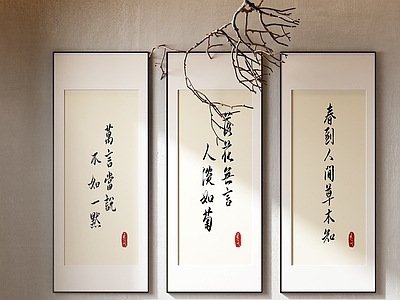 春到人間草木知
落花無言
人淡如菊
萬言當説
不如一黙